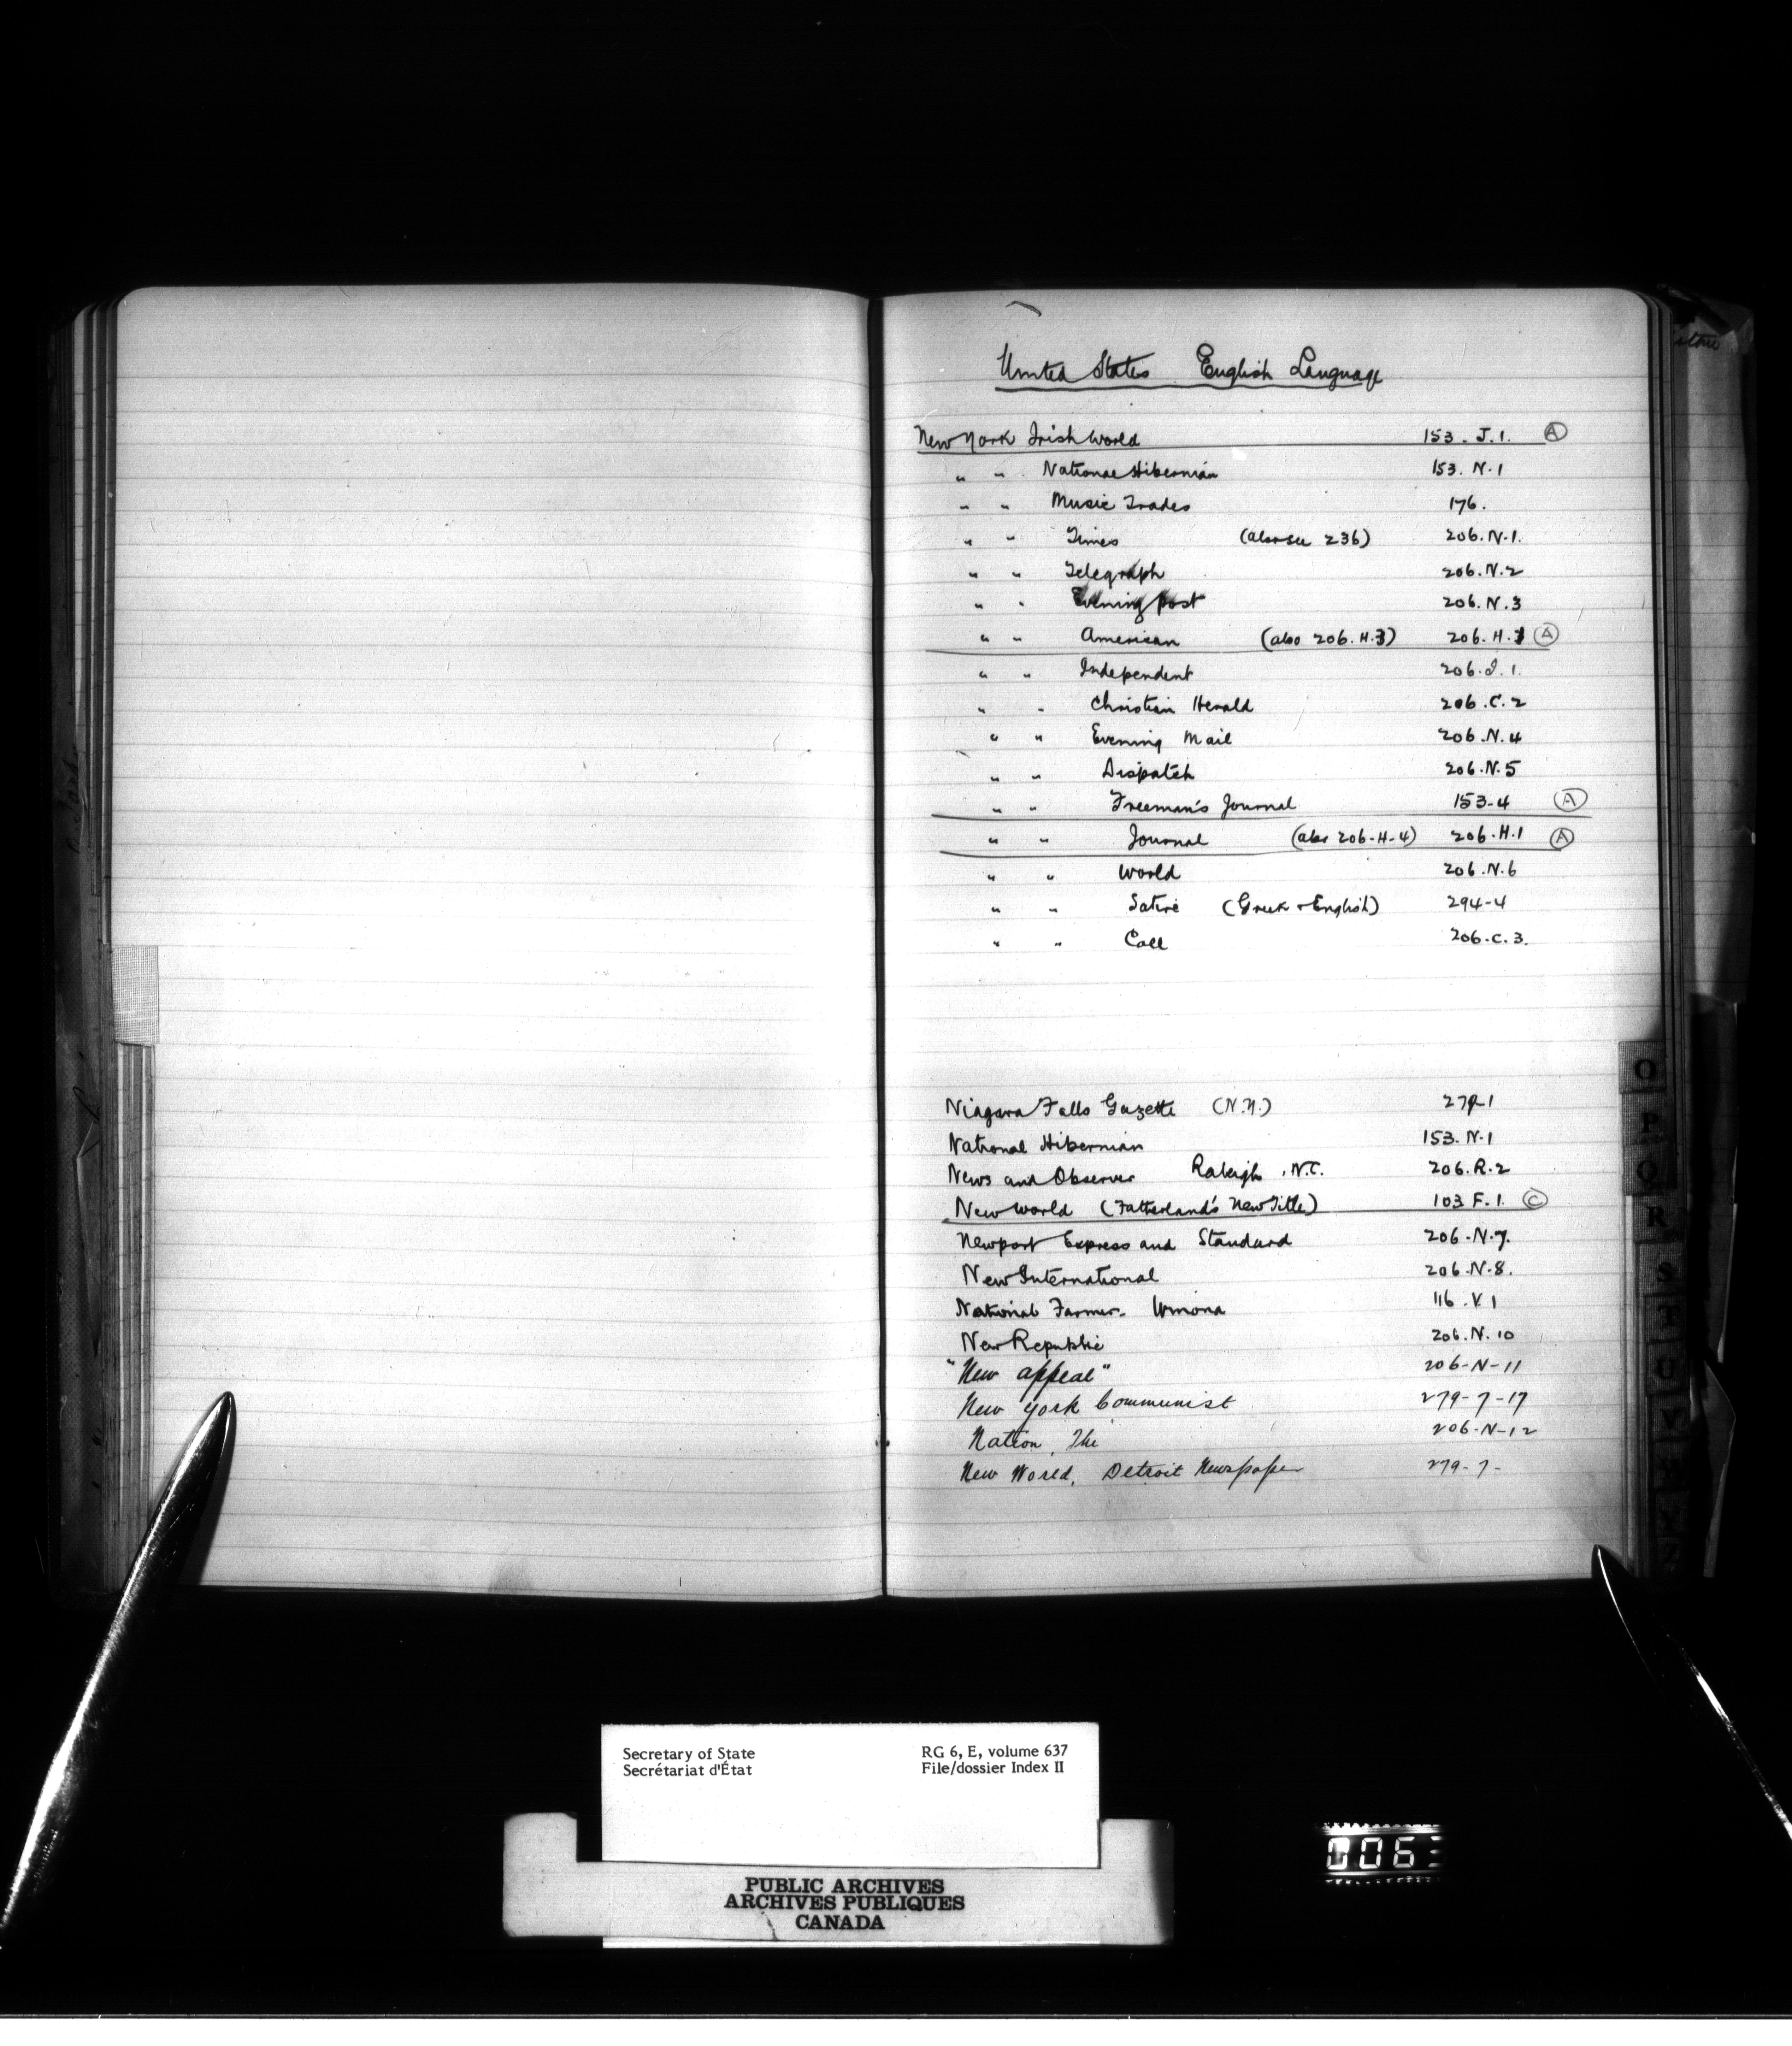 United States English Language
New York Irish World 153. J.1. A
" " National Hibernian 153. N.1
" " Music Trades 176.
" " Times (also see 236) 206.N.1.
" " Telegraph 206.N.2
" " Evening post 206.N.3
" " American (also 206.H.3) 206.H. A
" " Independent 206.I.1.
" " Christian Herald 206.C.2
" " Evening Mail 206.N.4
" " Dispatch 206.N.5
" " Freeman's Journal 153-4 A
" " Journal (also 206-H-4) 206.H.1 A
" " World 206.N.6
" " Satire (Greek + English) 294-4
" " Call 206.C.3.
Niagara Falls Gazette (N.Y.)
National Hibernian 153. N.1
News and Observer Raleigh, N.C. 206.R.2
New World (Fatherland's New Title) 103.F.1. C
Newport Express and Standard 206.N.7.
New International 206.N.8.
National Farmer. Winona 116.V.1
New Republic 206.N.10
"New appeal" 206-N-11
New York Communist 279-7-17
Nation, The 206-N-12
New World, Detroit Newspaper 279-7-
O
P
Q
R
S
T
U
V
Y
Z
Secretary of State
Secrétariat d'État
RG 6, E, volume 637
File/dossier Index II
PUBLIC ARCHIVES
ARCHIVES PUBLIQUES
CANADA
0063